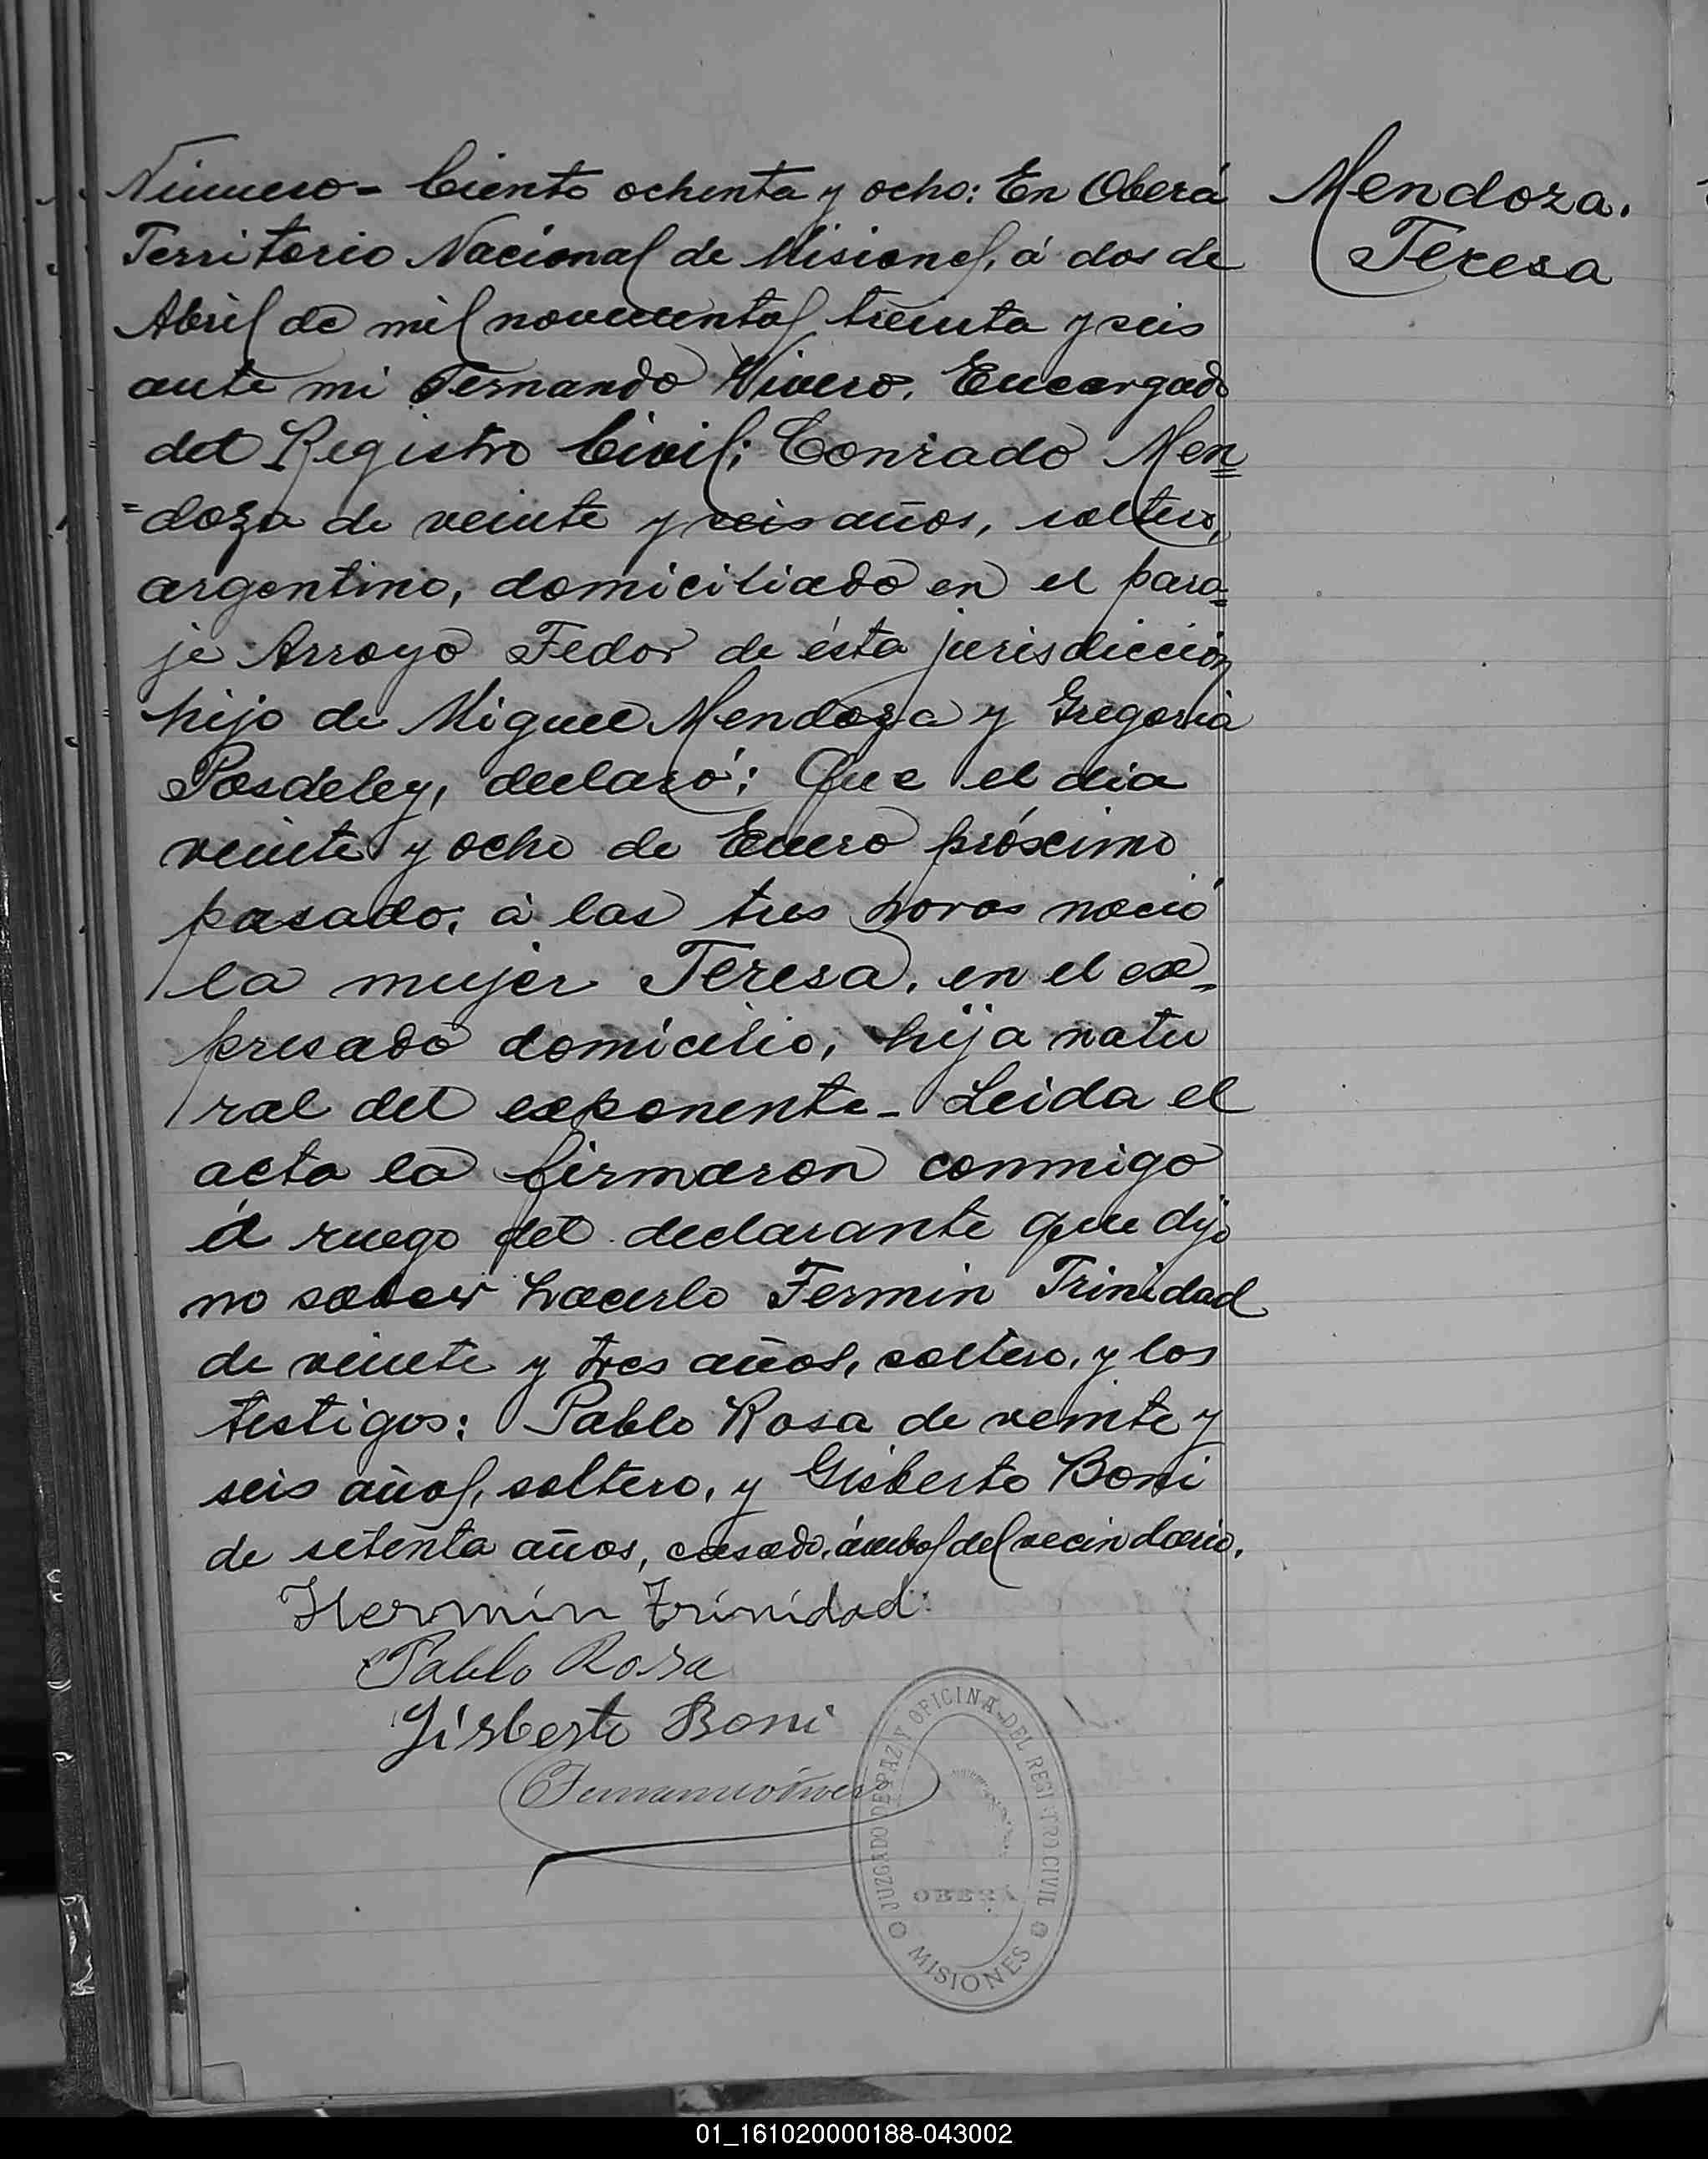 Número- Ciento ochenta y ocho: En Oberá
Territorio Nacional de Misiones, á dos de
Abril de mil novecientos treinta y seis
ante mi Fernando Vivero, Encargado
del Registro Civil; Conrado Men=
=doza de veinte y seis años, soltero,
argentino, domiciliado en el para=
je Arroyo Fedor de ésta jurisdicción
hijo de Miguel Mendoza y Gregoria
Posdeley, declaró: Que el dia
veinte y ocho de Enero próximo
pasado, á las tres horas nació
la mujer Teresa, en el ex=
presado domicilio, hija natu
ral del exponente- Leida el
acta la firmaron conmigo
á ruego del declarante que dijo
no saber hacerlo Fermin Trinidad
de veinte y tres años, soltero, y los
testigos: Pablo Rosa de veinte y
seis años, soltero, y Gisberto Boni
de setenta años, casado, ámbos del vecindario.
Hermín Trinidad
Pablo Rosa
Gisberto Boni
Mendoza.
Teresa
JUZGADO DE PAZ Y OFICINA DEL REGISTRO CIVIL
OBERÁ
MISIONES
01_161020000188-043002